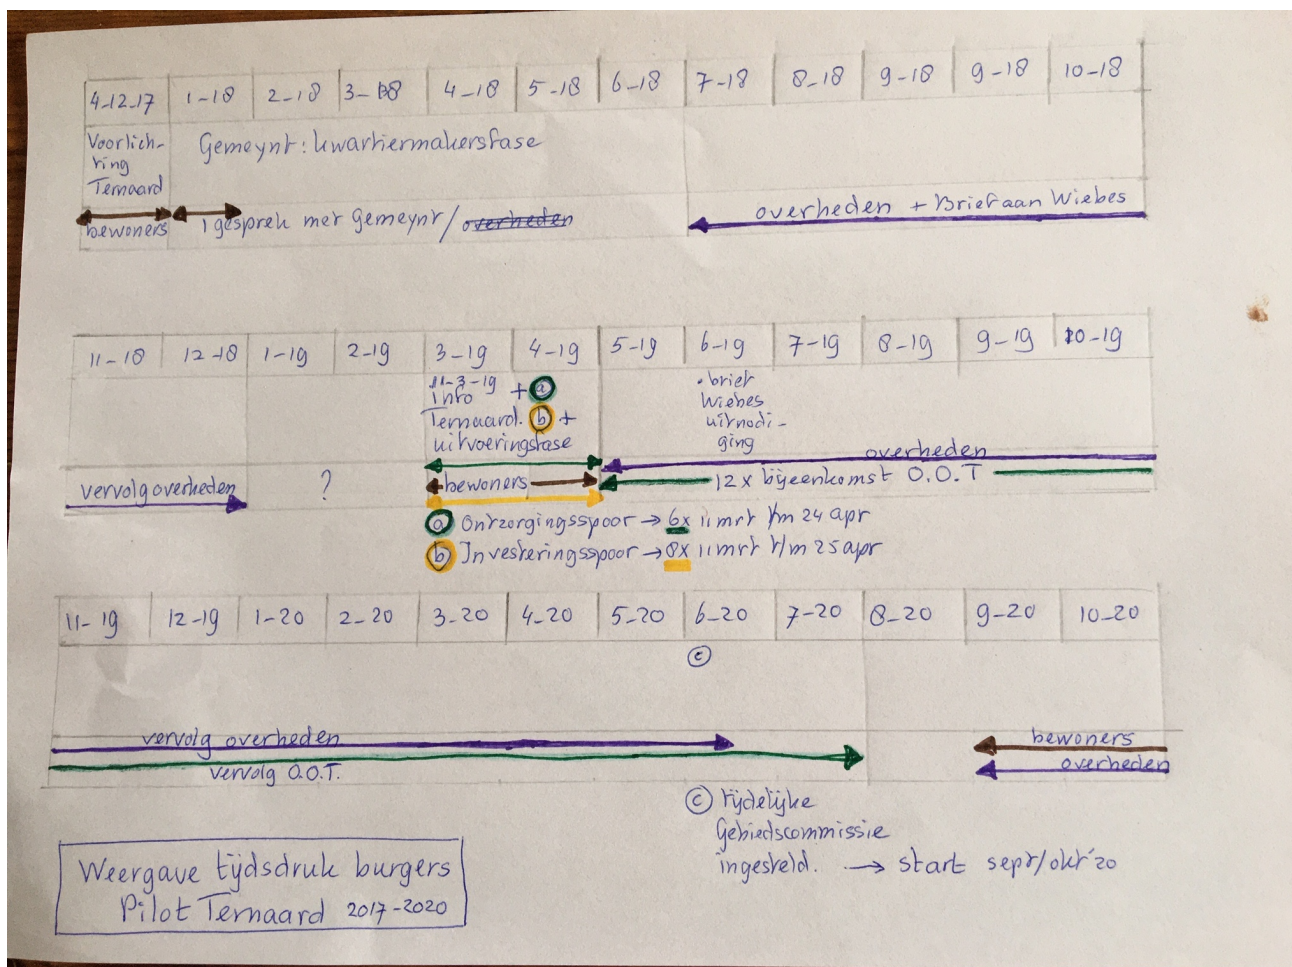 4-12-17 1-18 2-18 3-18 4-18 5-18 6-18 7-18 8-18 9-18 9-18 10-18
Voorlich-
ting
Ternaard
Gemeynt: kwartiermakersfase
bewoners
1 gesprek met Gemeynt / overheden
overheden + Brief aan Wiebes
11-18 12-18 1-19 2-19 3-19 4-19 5-19 6-19 7-19 8-19 9-19 10-19
11-3-19 + a
Info
Ternaard. b +
uitvoeringsfase
• brief
Wiebes
uitnodi-
ging
vervolg overheden
?
bewoners
overheden
12x bijeenkomst O.O.T
a Ontzorgingsspoor → 6x 11 mrt t/m 24 apr
b Investeringsspoor → 8x 11 mrt t/m 25 apr
11-19 12-19 1-20 2-20 3-20 4-20 5-20 6-20 7-20 8-20 9-20 10-20
c
vervolg overheden
vervolg O.O.T.
bewoners
overheden
c tijdelijke
Gebiedscommissie
ingesteld. → start sept/okt '20
Weergave tijdsdruk burgers
Pilot Ternaard 2017-2020